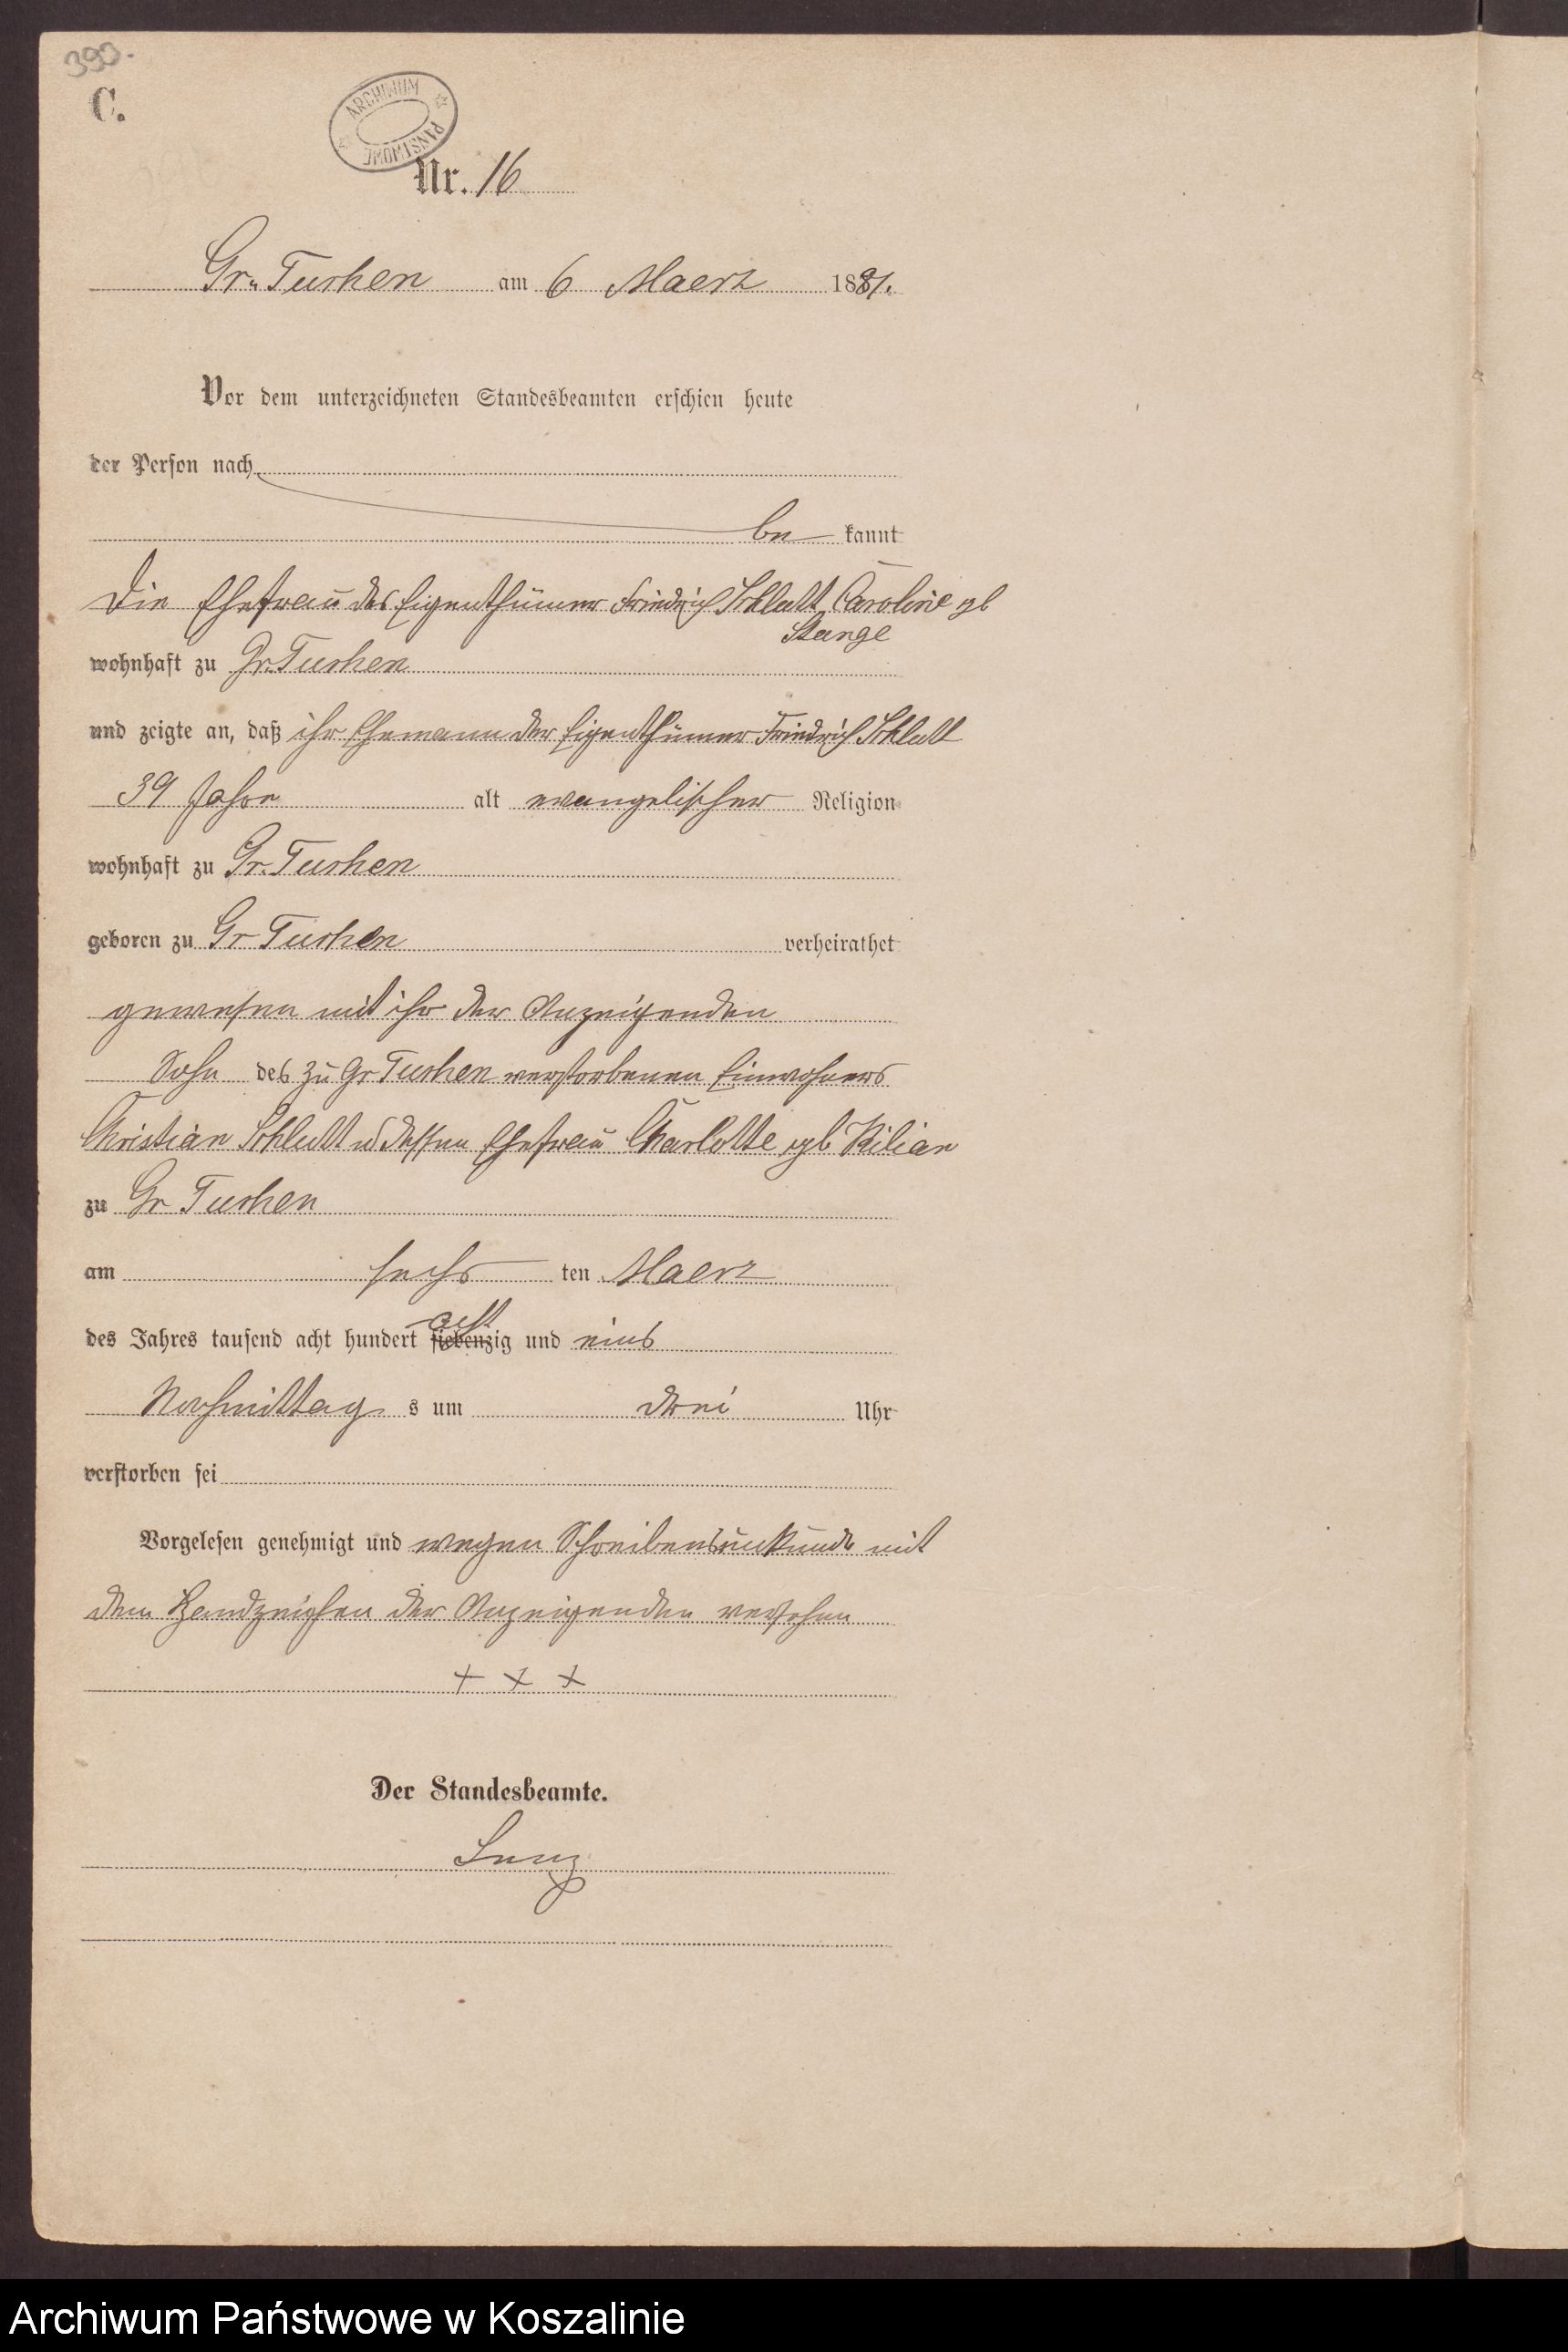 390.
C.
ARCHIWUM PAŃSTWOWE
Nr. 16
Gr. Tuchen am 6 Maerz 1881.
Vor dem unterzeichneten Standesbeamten erschien heute
der Person nach
be kannt
die Ehefrau des Eigenthümer Friedrich Schlutt, Caroline gb
Stange
wohnhaft zu Gr. Tuchen
und zeigte an, daß ihr Ehemann der Eigenthümer Friedrich Schlutt
39 Jahre alt evangelischer Religion
wohnhaft zu Gr. Tuchen
geboren zu Gr Tuchen verheirathet
gewesen mit ihr der Anzeigenden
Sohn des zu Gr Tuchen verstorbenen Einwohners
Christian Schlutt u dessen Ehefrau Charlotte gb Kilian
zu Gr Tuchen
am sechs ten Maerz
acht
des Jahres tausend acht hundert siebenzig und eins
Nachmittag s um drei Uhr
verstorben sei
Vorgelesen genehmigt und wegen Schreibensunkunde mit
dem Handzeichen der Anzeigenden versehen
+ + +
Der Standesbeamte.
Lenz
Archiwum Państwowe w Koszalinie